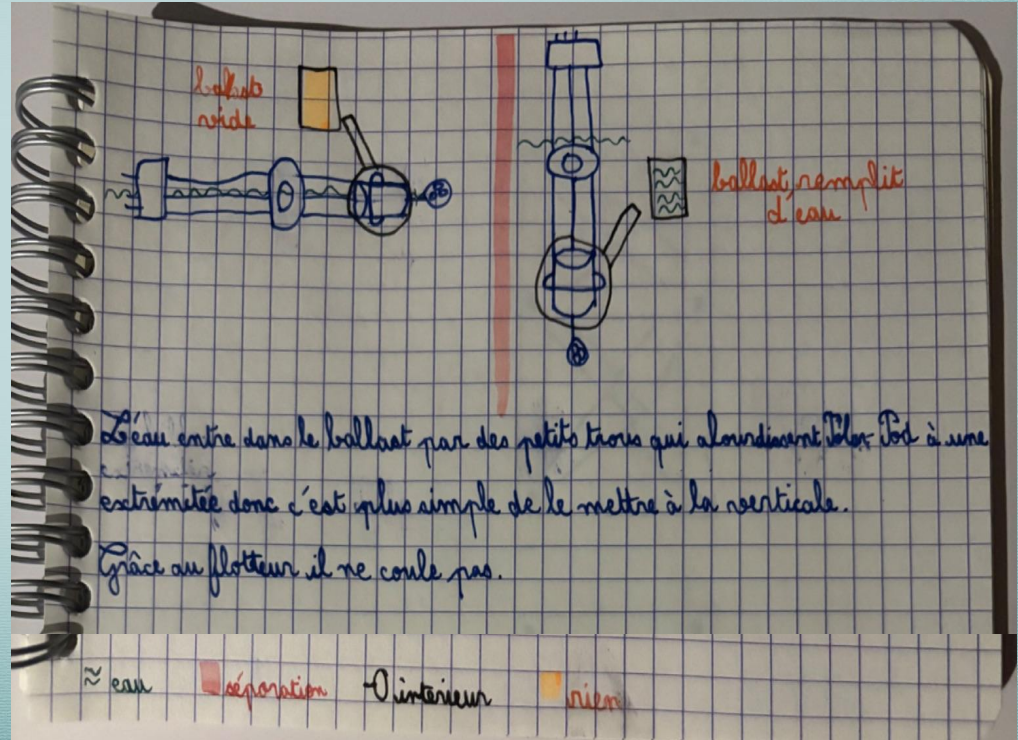 ballast
vide
ballast, remplit
d'eau
L'eau entre dans le ballast par des petits trous qui alourdissent Polar Pod à une
extrémitée donc c'est plus simple de le mettre à la verticale.
Grâce au flotteur il ne coule pas.
≈ eau séparation -O intérieur rien